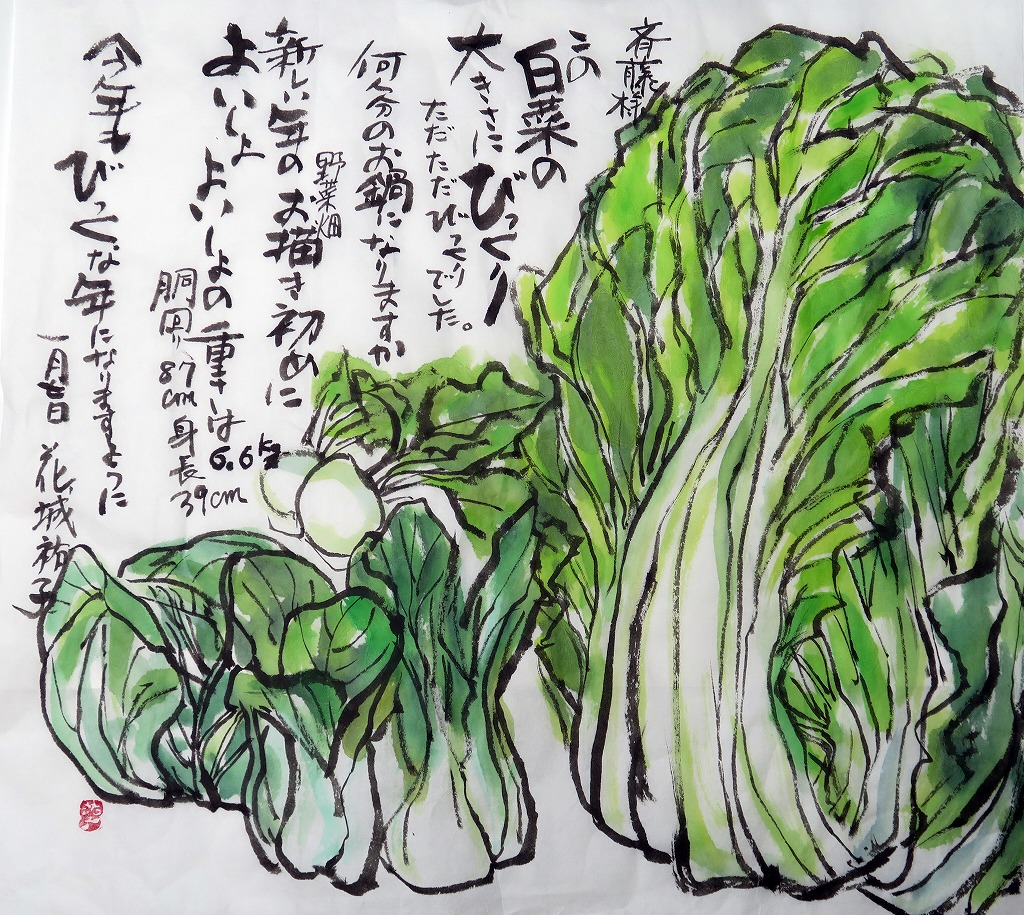 斉藤様
この
白菜の
大きさにびっくり
ただただびっくりでした。
何人分のお鍋になりますか
野菜畑
新しい年のお描き初めに
よいしょ よいしょの重さは 6.6kg
胴回り 87cm 身長 39cm
今年もびっくりな年になりますように
花城祐子